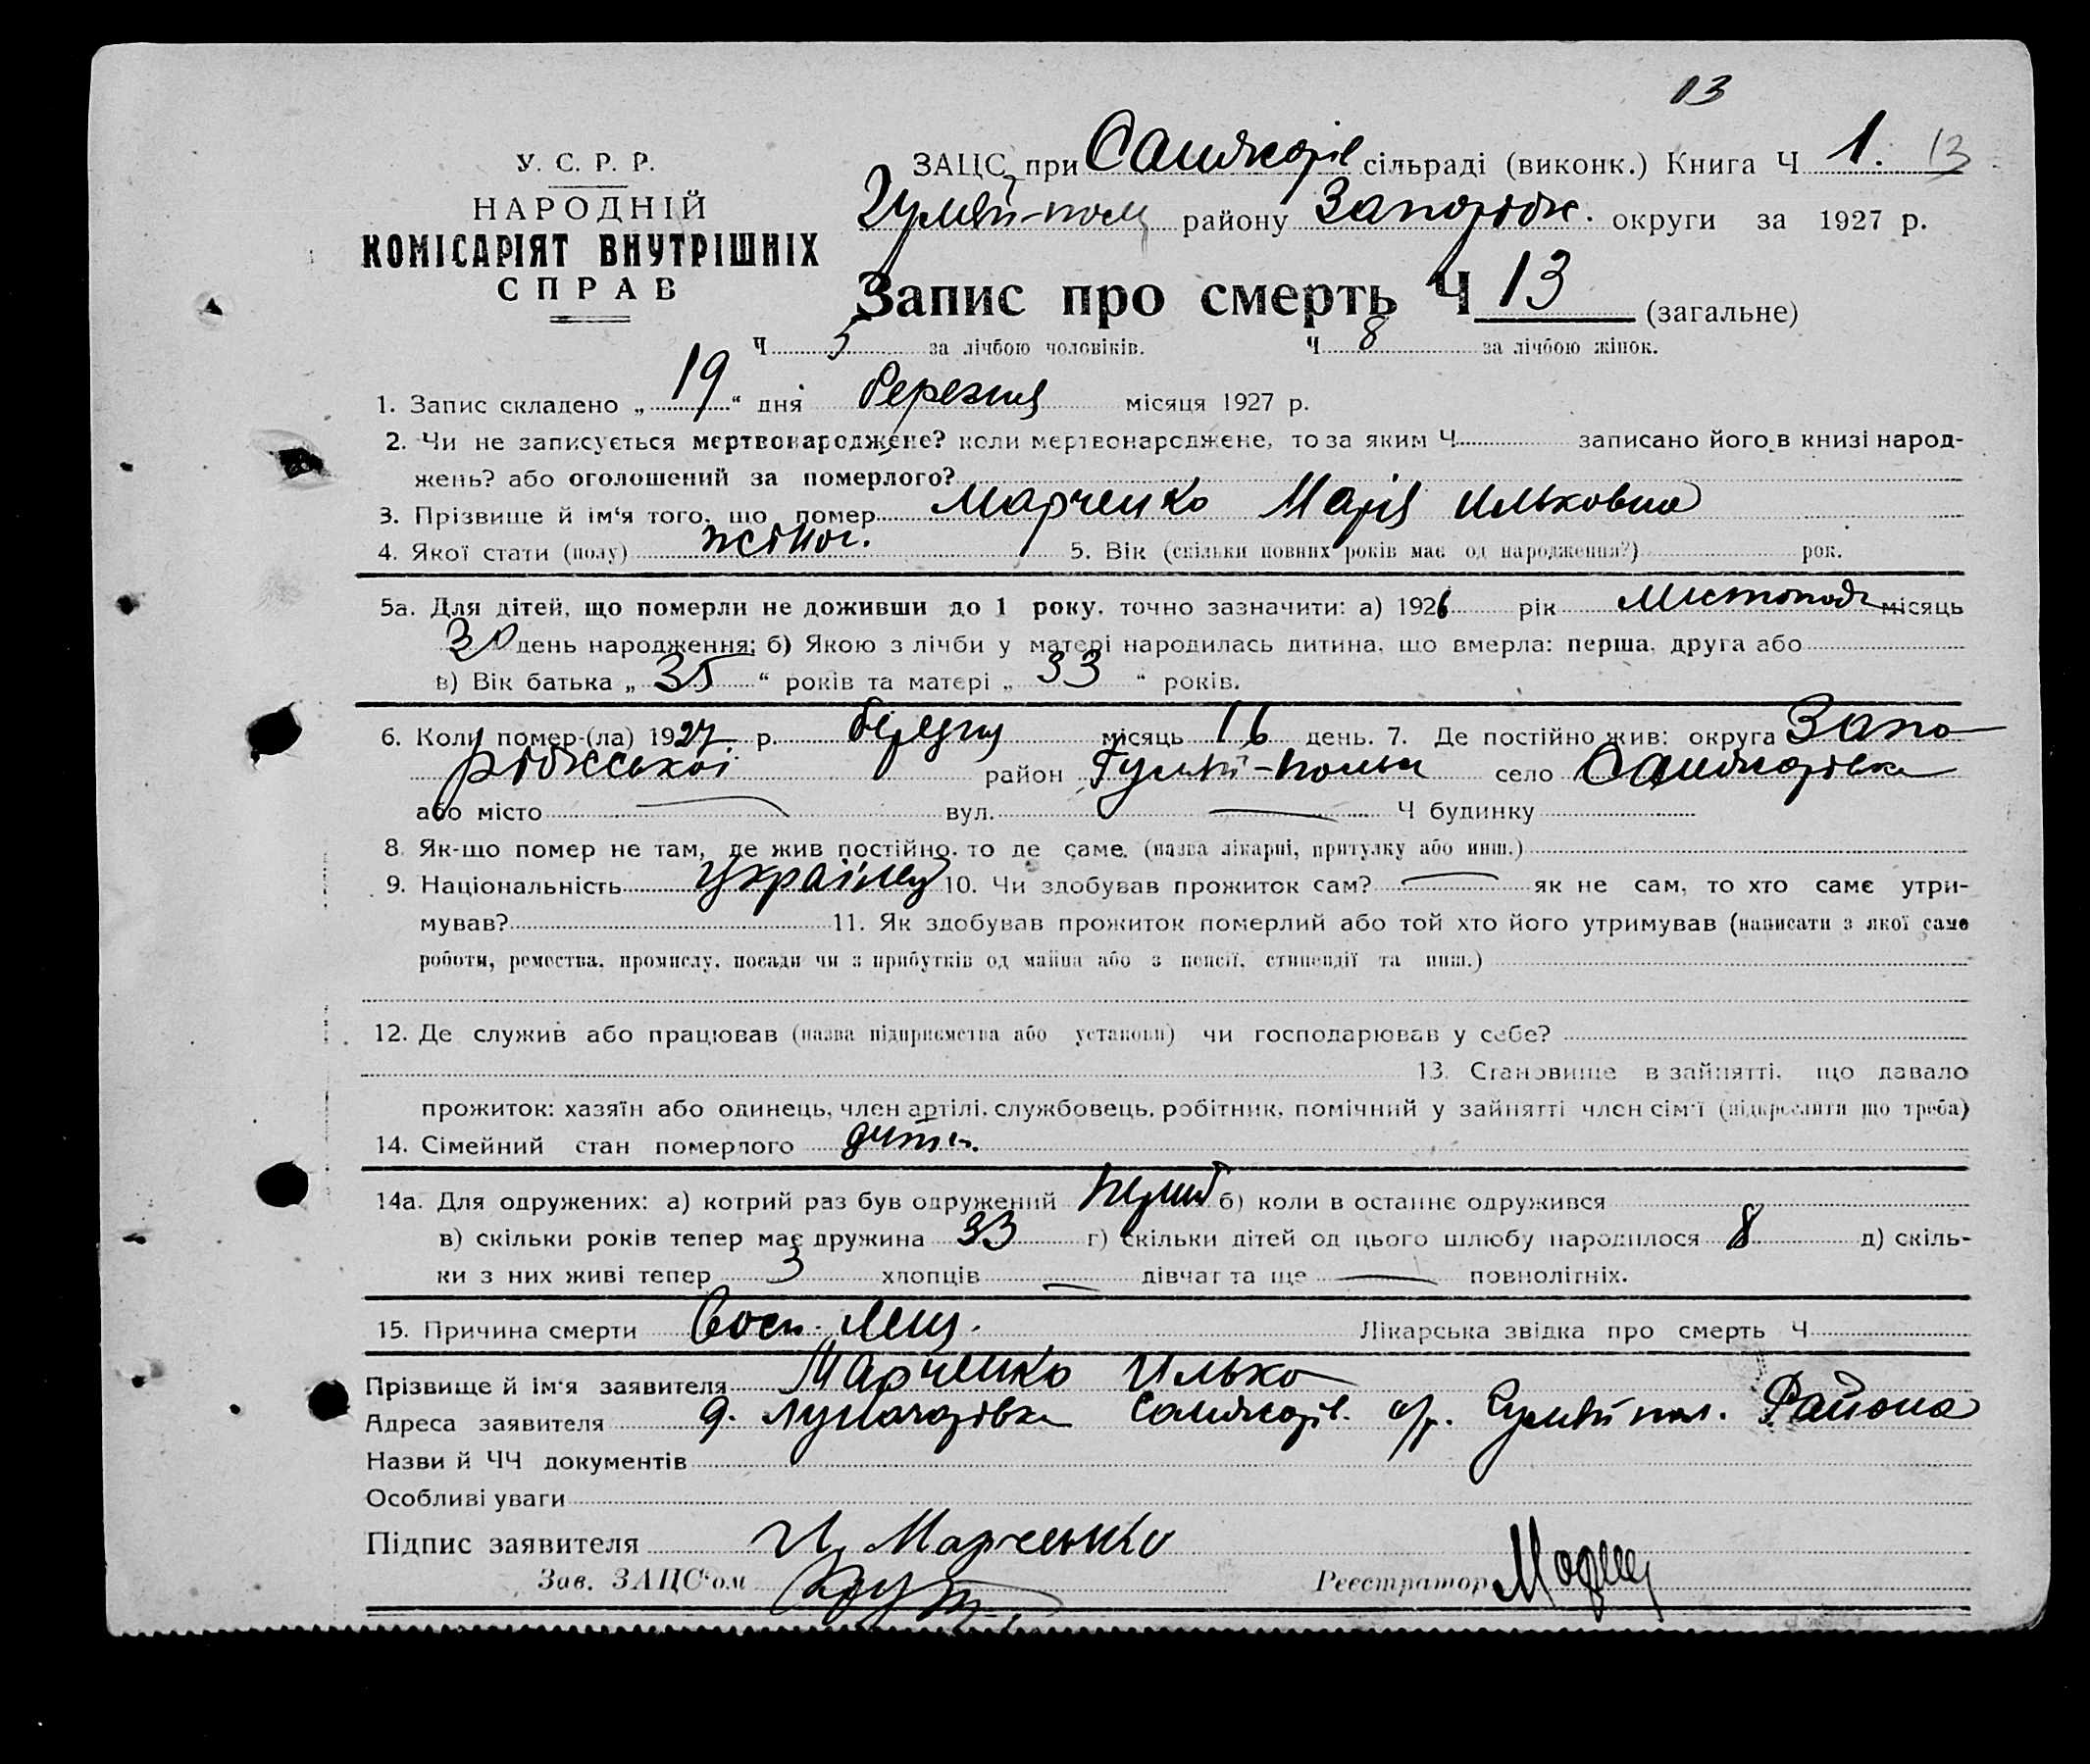 13
У. С. Р. Р.
НАРОДНІЙ
КОМІСАРІЯТ ВНУТРІШНІХ
СПРАВ
ЗАЦС при Санжарів сільраді (виконк.) Книга Ч 1. 13
Гуляй-поль району Запоріж. округи за 1927 р.
Запис про смерть Ч 13 (загальне)
Ч 5 за лічбою чоловіків. Ч 8 за лічбою жінок.
1. Запис складено „ 19 “ дня березня місяця 1927 р.
2. Чи не записується мертвонароджене? коли мертвонароджене, то за яким Ч записано його в книзі народ-
жень? або оголошений за померлого?
3. Прізвище й ім‘я того, що помер Марченко Марія Ильковна
4. Якої стати (полу) жіноч. 5. Вік (скільки повних років має од народження?) рок.
5а. Для дітей, що померли не доживши до 1 року, точно зазначити: а) 1926 рік Листопад місяць
30 день народження; б) Якою з лічби у матері народилась дитина, що вмерла: перша, друга або
в) Вік батька „ 35 “ років та матері „ 33 “ років.
6. Коли помер-(ла) 1927 р. березня місяць 16 день. 7. Де постійно жив: округа Запо
ріжської район Гуляй-польск село Санжарівка
або місто — вул. — Ч будинку
8. Як-що помер не там, де жив постійно, то де саме. (назва лікарні, притулку або инш.)
9. Національність українец 10. Чи здобував прожиток сам? — як не сам, то хто саме утри-
мував? 11. Як здобував прожиток померлий або той хто його утримував (написати з якої саме
роботи, ремества, промислу, посади чи з прибутків од майна або з пенсії, стипендії та инш.)
12. Де служив або працював (назва підприємства або установи) чи господарював у себе?
13. Становище в зайнятті, що давало
прожиток: хазяїн або одинець, член артілі, службовець, робітник, помічний у зайнятті член сім‘ї (підкреслити що треба)
14. Сімейний стан померлого дитин.
14а. Для одружених: а) котрий раз був одружений перший б) коли в останнє одружився
в) скільки років тепер має дружина 33 г) скільки дітей од цього шлюбу народилося 8 д) скіль-
ки з них живі тепер 3 хлопців — дівчат та ще — повнолітніх.
15. Причина смерти Восп. Лег. Лікарська звідка про смерть Ч
Прізвище й ім‘я заявителя Марченко Илько
Адреса заявителя Санжарів. с/р. Гуляйпол. Района
Назви й ЧЧ документів
Особливі уваги
Підпис заявителя И Марченко
Зав. ЗАЦС‘ом Реєстратор